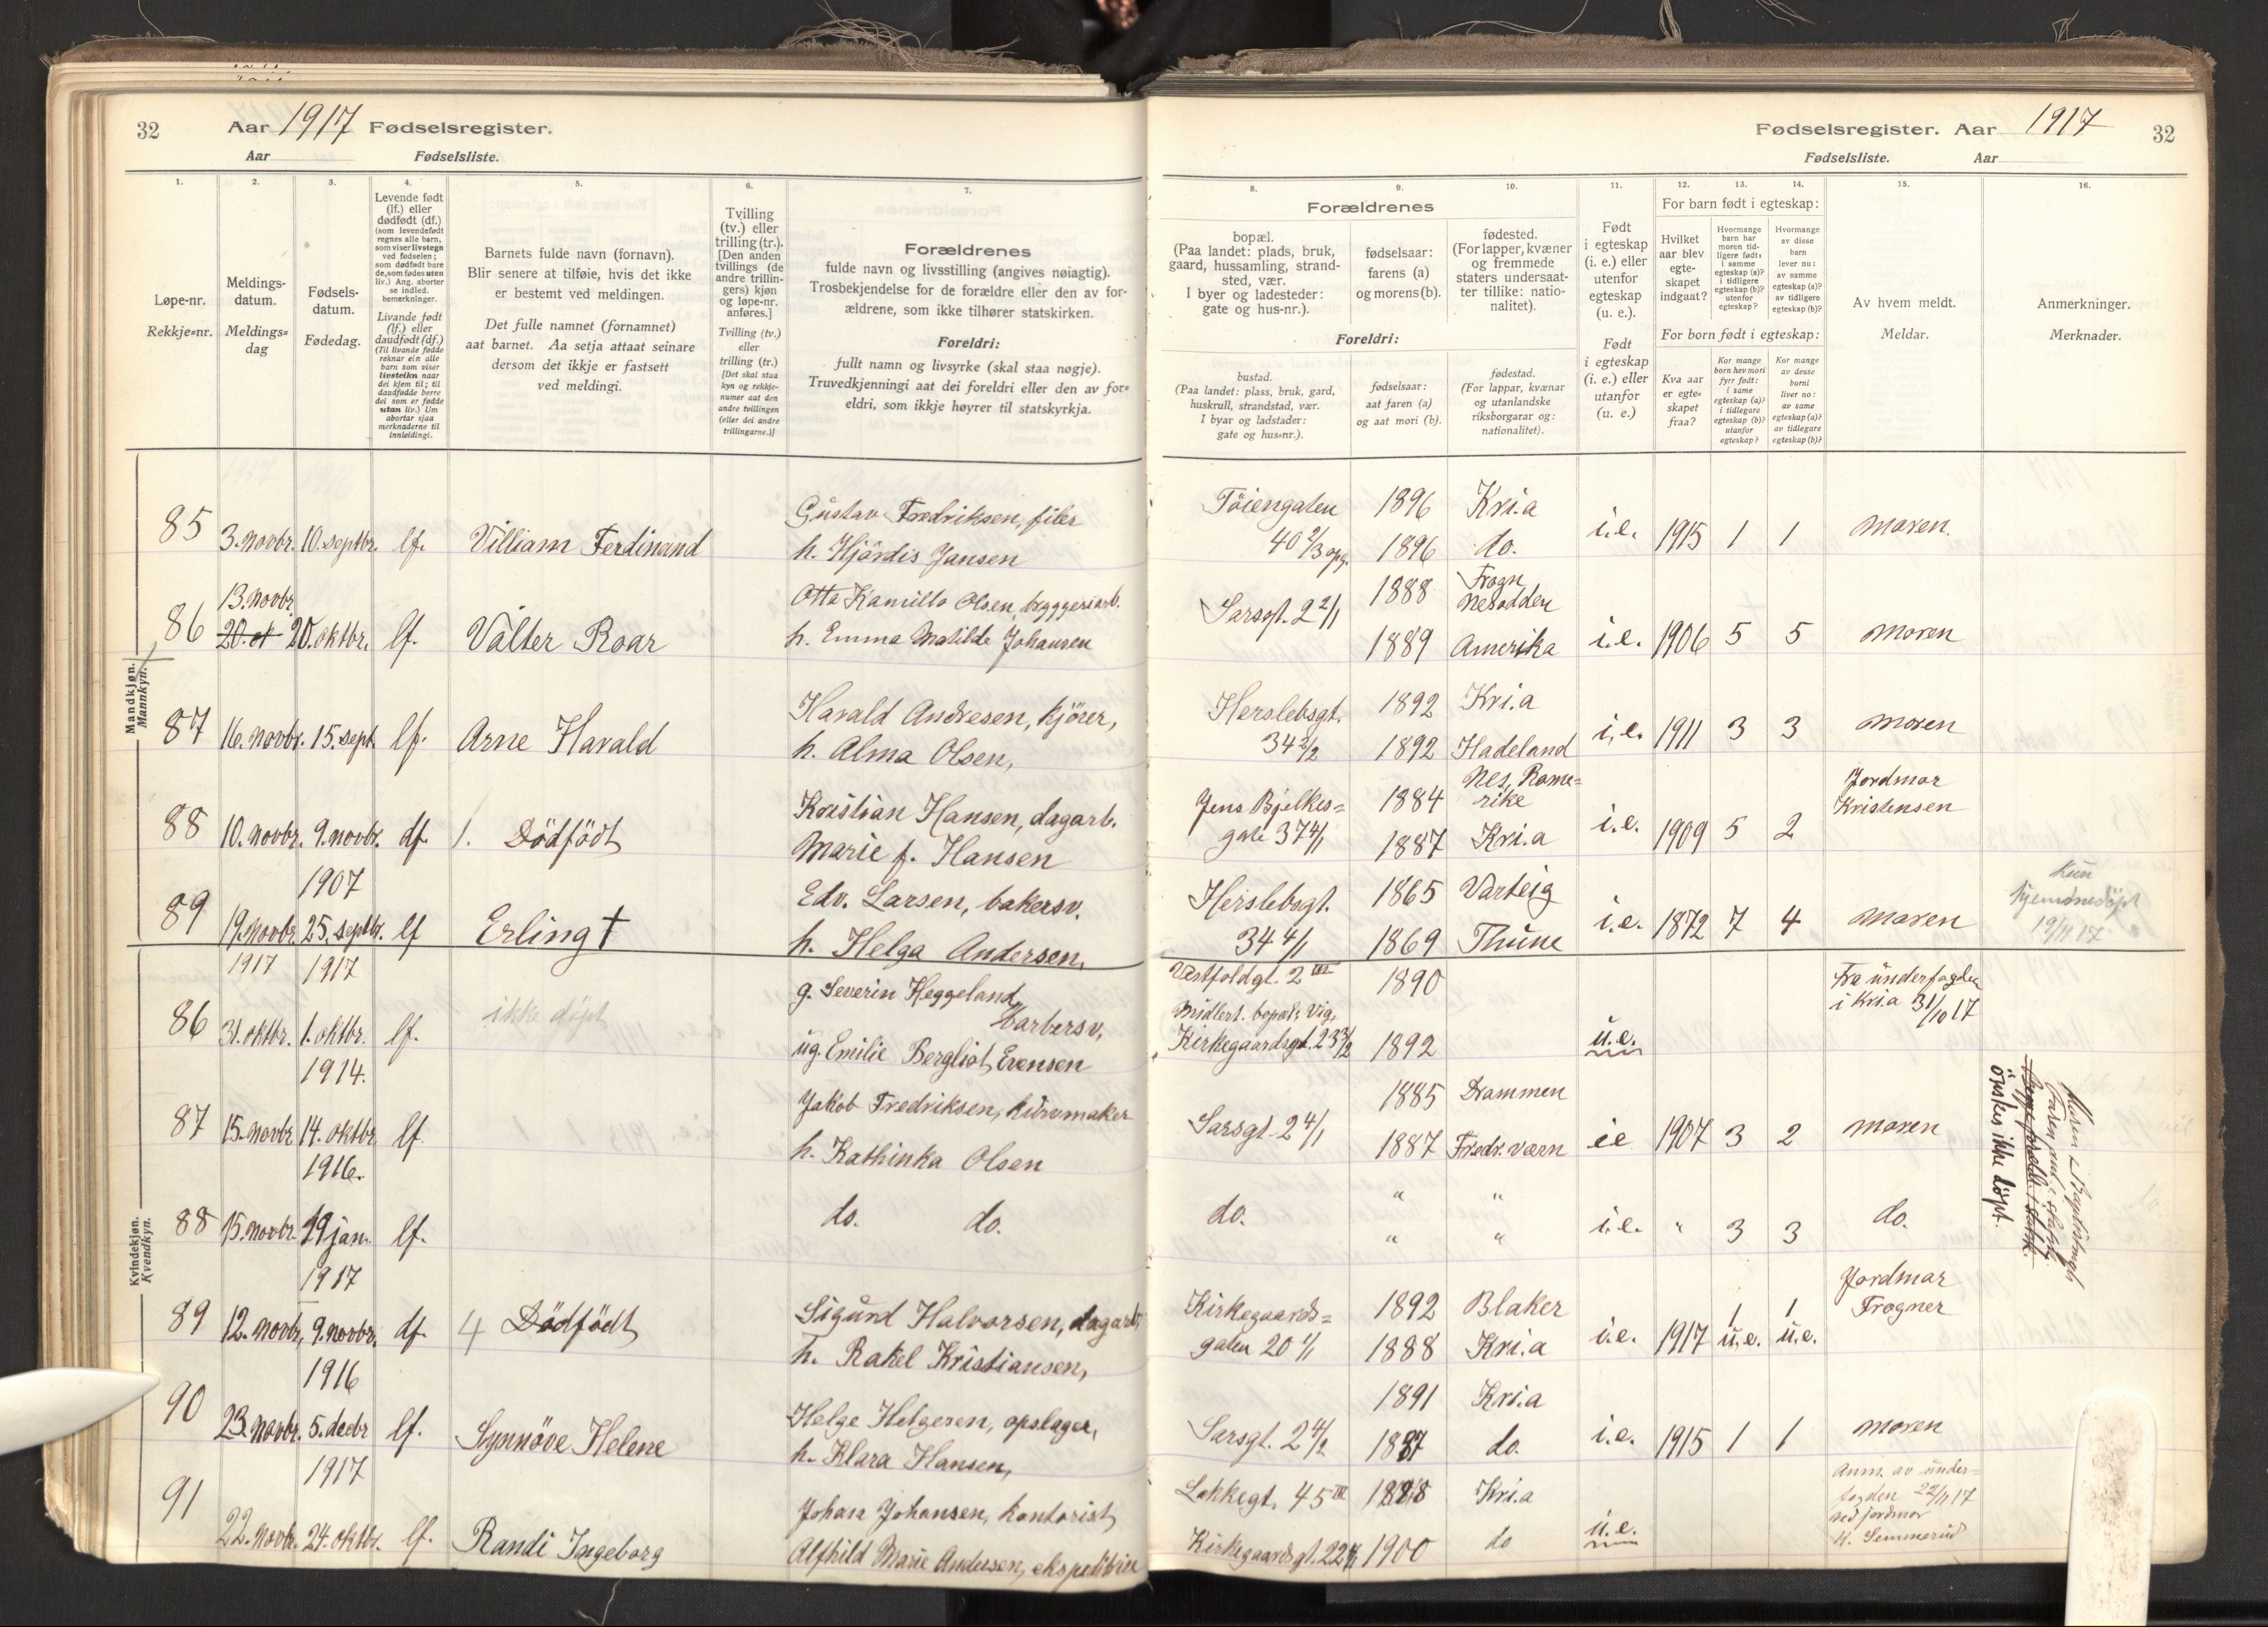 32
Aar 1917 Fødselsregister.
Aar Fødselsliste.
1. 2. 3. 4. 5. 6. 7.
Løpe-nr.
Rekkje=nr.
Meldings-
datum.
Meldings=
dag
Fødsels-
datum.
Fødedag.
Levende født
(lf.) eller
dødfødt (df.)
(som levendefødt
regnes alle barn,
som viser livstegn
ved fødselen;
som dødfødt bare
de, som fødes uten
liv.) Ang. aborter
se indled.
bemerkninger.
Livande født
(lf.) eller
daudfødt (df.)
(Til livande fødde
reknar ein alle
barn som viser
livsteikn naar
dei kjem til; til
daudfødde berre
dei som er fødde
utan liv.) Um
abortar sjaa
merknaderne til
innleidingi.
Barnets fulde navn (fornavn).
Blir senere at tilføie, hvis det ikke
er bestemt ved meldingen.
Det fulle namnet (fornamnet)
aat barnet. Aa setja attaat seinare
dersom det ikkje er fastsett
ved meldingi.
Tvilling
(tv.) eller
trilling (tr.).
[Den anden
tvillings (de
andre trillin-
gers) kjøn
og løpe-nr.
anføres.]
Tvilling (tv.)
eller
trilling (tr.)
[Det skal staa
kyn og rekkje-
numer aat den
andre tvillingen
(eller dei andre
trillingarne.)]
Forældrenes
fulde navn og livsstilling (angives nøiagtig).
Trosbekjendelse for de forældre eller den av for-
ældrene, som ikke tilhører statskirken.
Foreldri:
fullt namn og livsyrke (skal staa nøgje).
Truvedkjenningi aat dei foreldri eller den av for=
eldri, som ikkje høyrer til statskyrkja.
Mandkjøn.
Mannkyn.
85 3. novbr. 10. septbr. lf. Villiam Ferdinand
Gustav Fredriksen, filer
h. Hjördis Jansen
13. novbr.
86 20. ok 20. oktbr. lf. Valter Roar
Otto Kamillo Olsen, bryggeriarb.
h. Emma Matilde Johansen
87 16. novbr. 15. sept. lf. Arne Harald
Harald Andresen, kjörer,
h. Alma Olsen,
88 10. novbr. 9. novbr. df. 1. Dödfödt
Kristian Hansen, dagarb.
Marie f. Hansen
1907
89 19. novbr. 25. septbr. lf Erling †
Edv. Larsen, bakersv.
h. Helga Andersen,
Kvindekjøn.
Kvendkyn.
1917 1917
86 31. oktbr. 1. oktbr. lf. ikke döpt
g. Severin Heggeland,
barbersv.
ug. Emilie Bergliot Evensen
1914.
87 15. novbr 14. oktbr. lf.
Jakob Fredriksen, kurvmaker
h. Kathinka Olsen
1916.
88 15. novbr. 19 jan. lf.
do. do.
1917
89 12. novbr, 9. novbr. df. 4 Dödfödt
Sigurd Halvorsen, dagarb.
h. Rakel Kristiansen,
1916
90 23. novbr. 5. decbr lf. Synnöve Helene
Helge Helgesen, opslager,
h. Klara Hansen,
1917
91 22. novbr. 24. oktbr. lf. Randi Ingeborg
Johan Johansen, kontorist
Alfhild Marie Andersen, ekspeditrise
Fødselsregister. Aar 1917 32
Fødselsliste. Aar
8. 9. 10. 11. 12. 13. 14. 15. 16.
Forældrenes
bopæl.
(Paa landet: plads, bruk,
gaard, hussamling, strand-
sted, vær.
I byer og ladesteder:
gate og hus-nr.).
fødselsaar:
farens (a)
og morens (b).
fødested.
(For lapper, kvæner
og fremmede
staters undersaat-
ter tillike: natio-
nalitet).
Foreldri:
bustad.
(Paa landet: plass, bruk, gard,
huskrull, strandstad, vær.
I byar og ladstader:
gate og hus=nr.).
fødselsaar:
aat faren (a)
og aat mori (b).
fødestad.
(For lappar, kvænar
og utanlandske
riksborgarar og:
nationalitet).
Født
i egteskap
(i. e.) eller
utenfor
egteskap
(u. e.).
Født
i egteskap
(i. e.) eller
utanfor
egteskap
(u. e.)
For barn født i egteskap:
Hvilket
aar blev
egte-
skapet
indgaat?
Hvormange
barn har
moren tid-
ligere født:
i samme
egteskap (a)?
i tidligere
egteskap (b)?
utenfor
egteskap?
Hvormange
av disse
barn
lever nu:
av samme
egteskap (a)?
av tidligere
egteskap (b)?
For born født i egteskap:
Kva aar
er egte=
skapet
fraa?
Kor mange
born hev mori
fyrr født:
i same
egteskap (a)?
i tidlegare
egteskap (b)?
utanfor
egteskap?
Kor mange
av desse
borni
liver no:
av same
egteskap (a)?
av tidlegare
egteskap (b)?
Av hvem meldt.
Meldar.
Anmerkninger.
Merknader.
Töiengaten 1896 Kri.a
40 2/3 opg. 1896 do. i.e. 1915 1 1 moren.
Sarsgt. 2 2/1 1888 Frogn
Nesodden
1889 Amerika i.e. 1906 5 5 moren
Herslebsgt. 1892 Kri.a
34 2/2 1892 Hadeland i.e. 1911 3 3 moren
Jens Bjelkes= 1884 Nes, Rome=
rike
gate 37 4/1 1887 Kri.a i.e. 1909 5 2 Jordmor
Kristensen
Herslebsgt. 1865 Varteig
34 4/1 1869 Thune i.e. 1872 7 4 moren
Kun
hjemmedöpt
19/11 17
Vestfoldgt. 2 III 1890
Midlert. bopæl: Vig,
Kirkegaardsgt. 23 3/2 1892 u.e.
Fra underfogden
i Kria 31/10 17
1885 Drammen
Sarsgt. 2 4/1 1887 Fredr.værn ie 1907 3 2 moren
do. " "
" " i.e. " 3 3 do.
Moren
önskes ikke döpt.
Kirkegaards= 1892 Blaker
gaten 20 1/1 1888 Kri.a i.e. 1917 1 u.e. 1 u.e.
Jordmor
Frogner
1891 Kri.a
Sarsgt. 2 4/2 1887 do. i.e. 1915 1 1 moren
Lakkegt. 45 III 1888 Kri.a
Kirkegaardsgt. 22 1900 do u.e.
Anm. av under=
fogden 22/11 17
ved jordmor